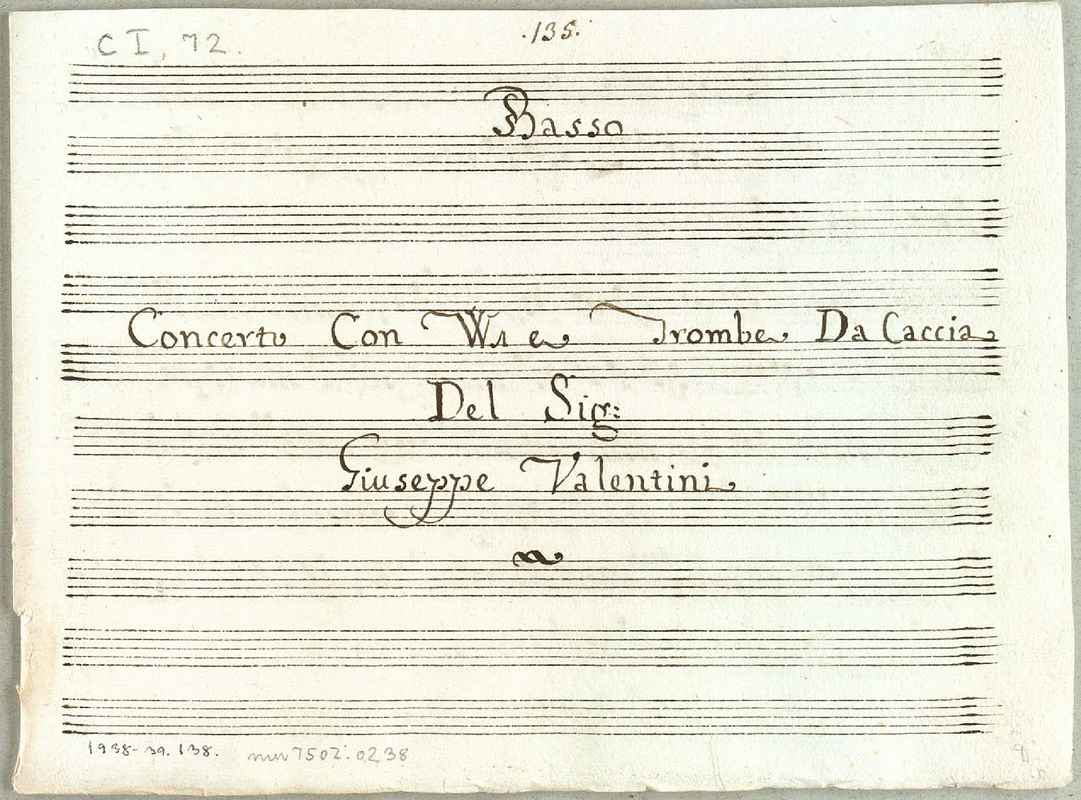 C I, 72.
.135.
Basso
Concerto Con VV e Trombe Da Caccia
Del Sig:
Giuseppe Valentini
1938-39. 138.
muv7502:0238